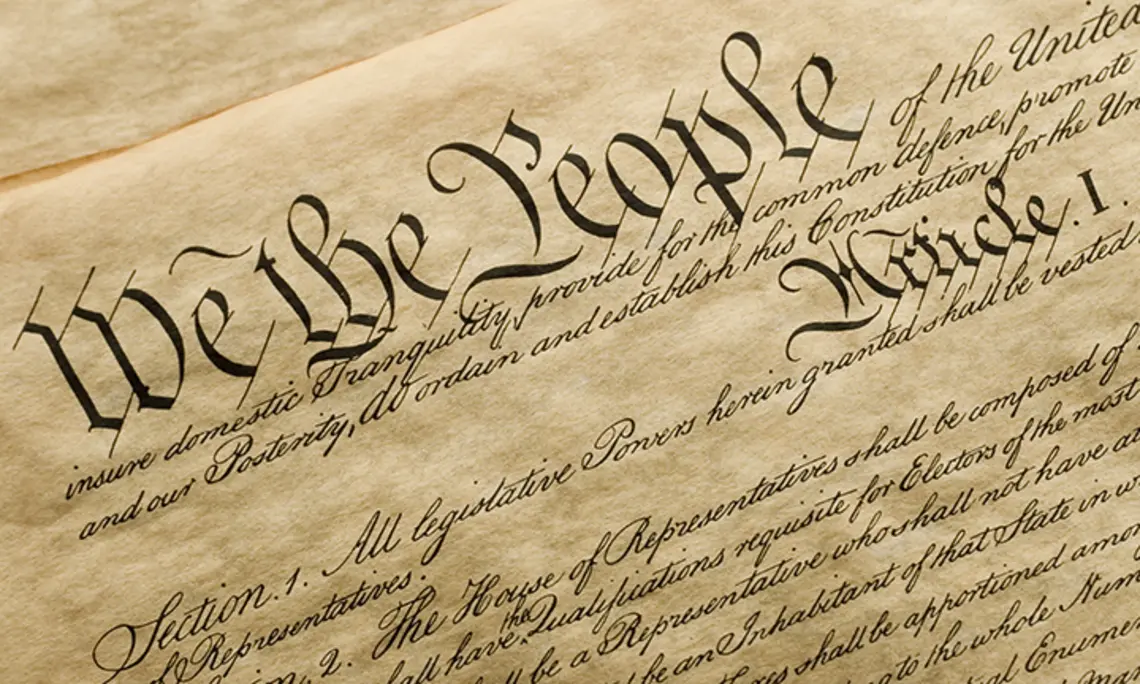 We the People of the United
insure domestic Tranquility, provide for the common defence, promote
and our Posterity, do ordain and establish this Constitution for the Un
Article. I.
Section. 1. All legislative Powers herein granted shall be vested
of Representatives.
2. The House of Representatives shall be composed of
all have the Qualifications requisite for Electors of the most
ll be a Representative who shall not have a
be an Inhabitant of that State in w
shall be apportioned amo
to the whole Num
Enume